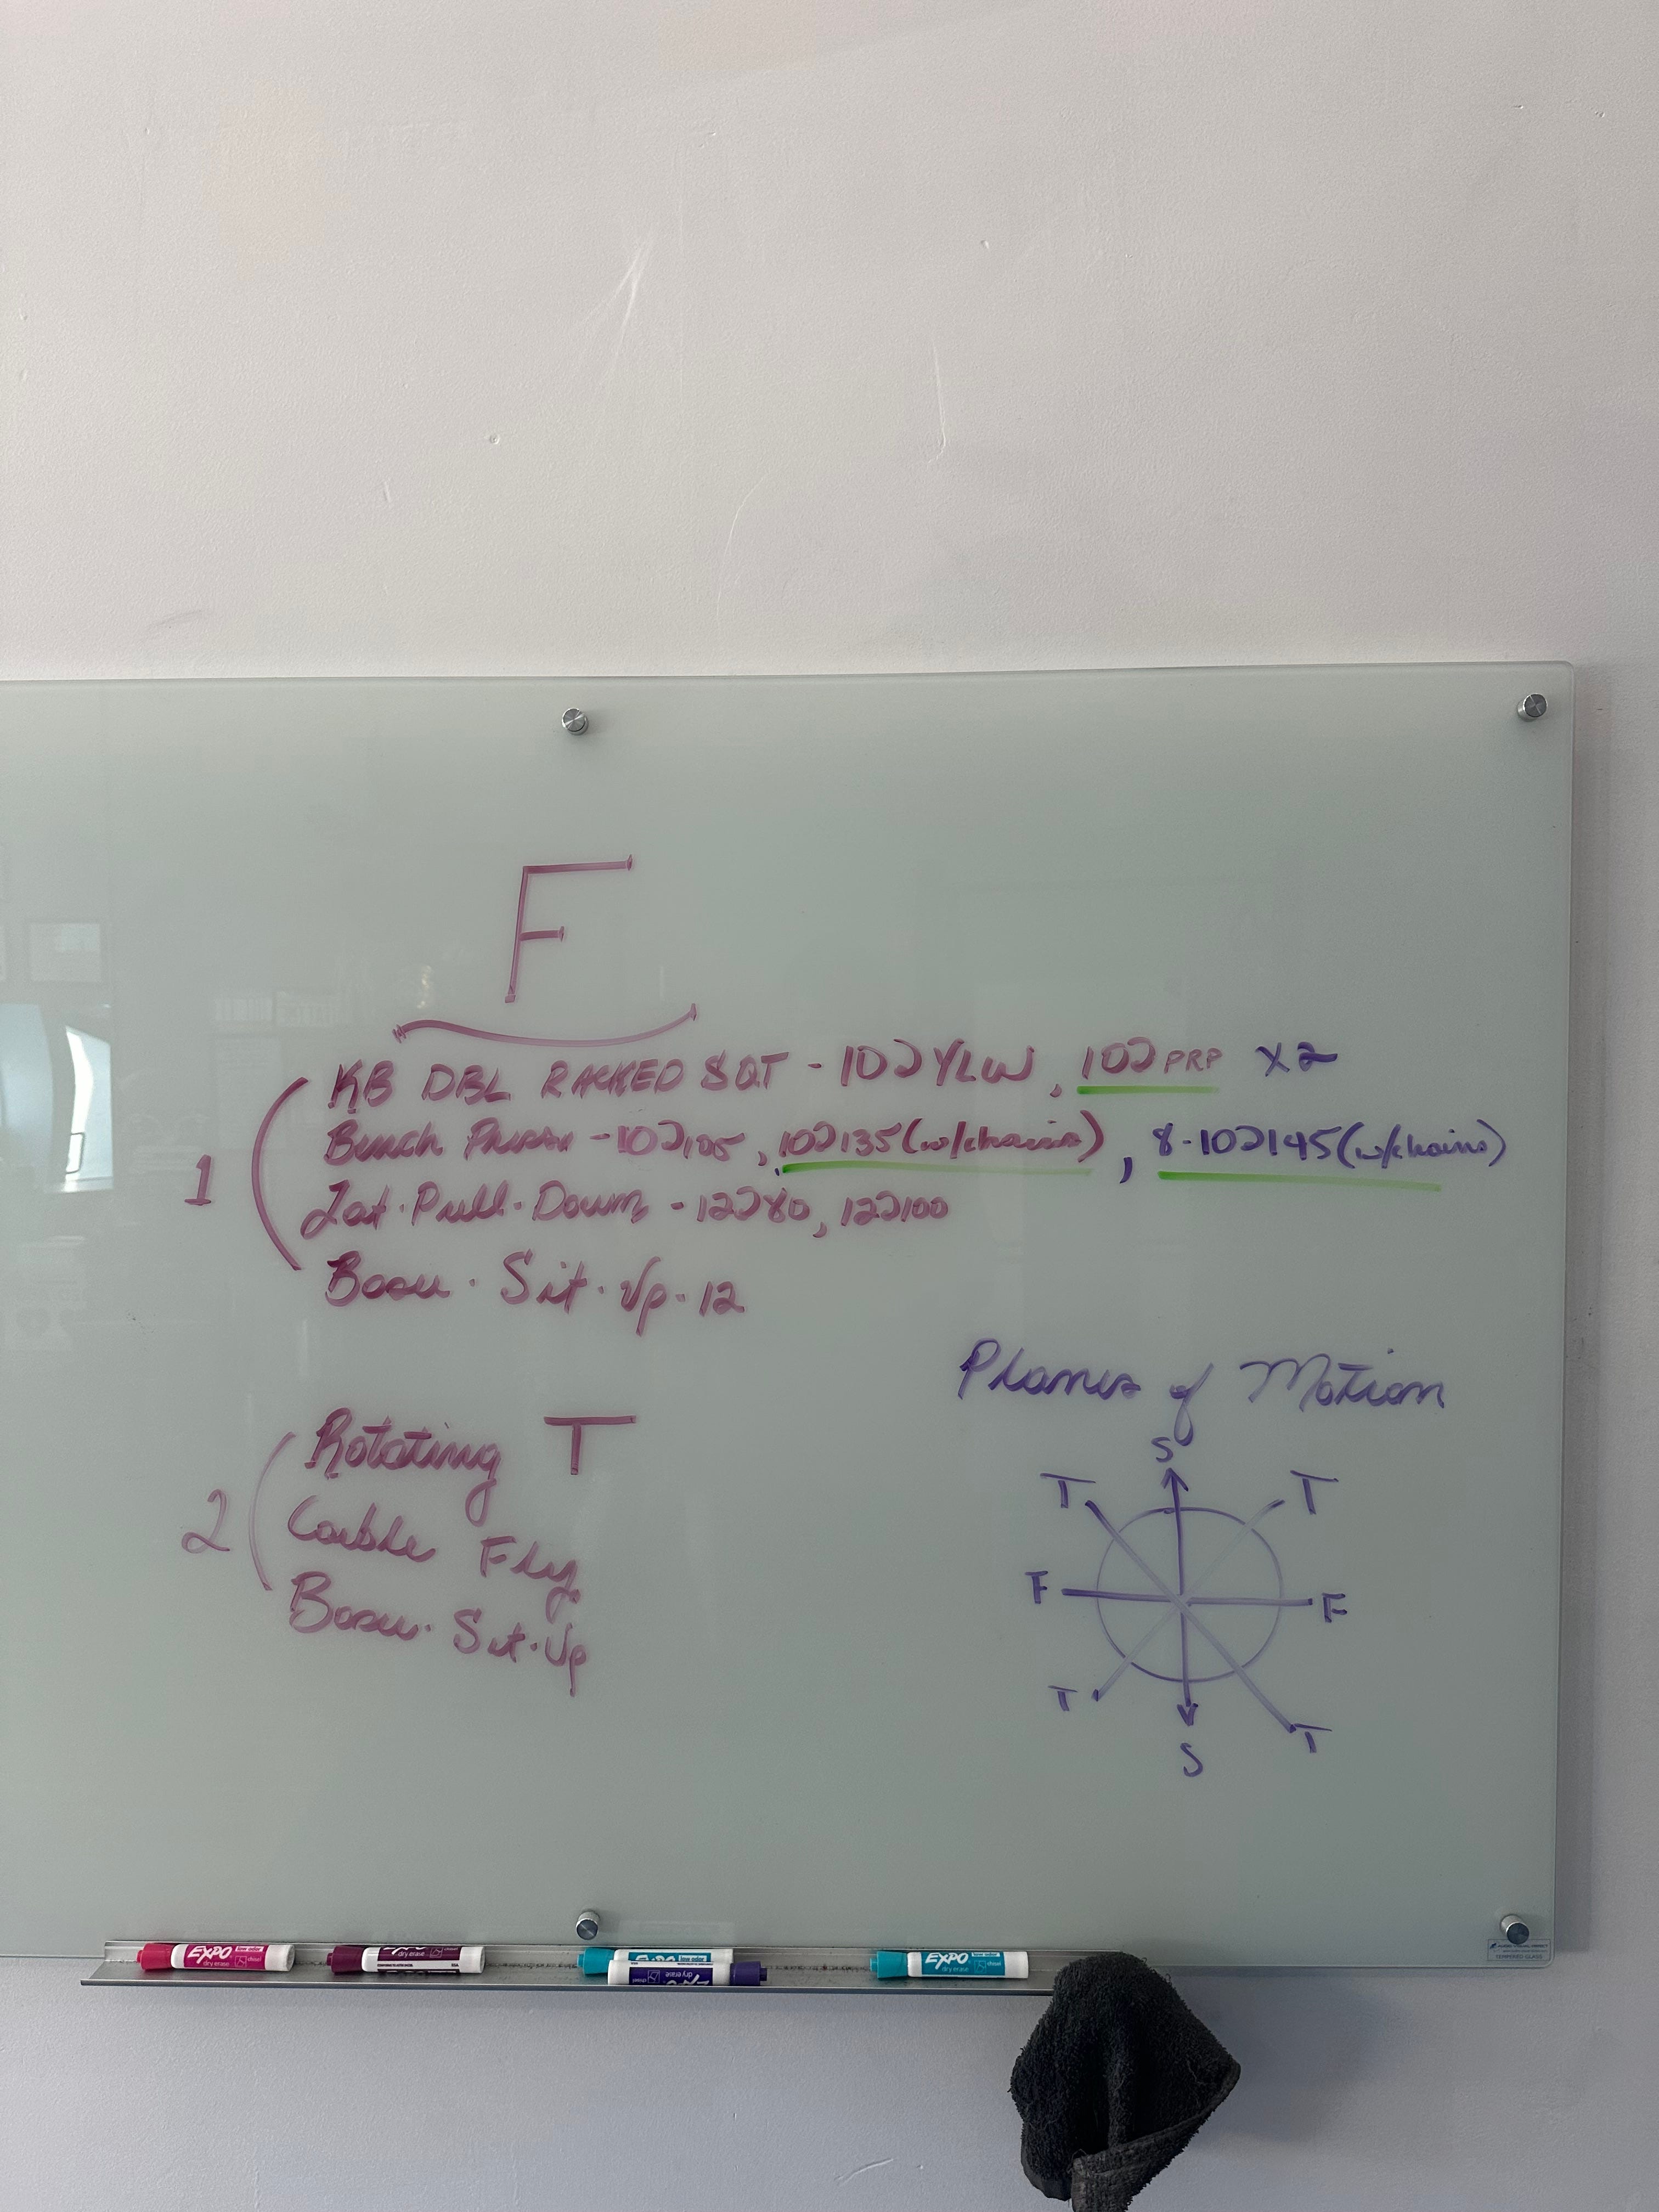 F
KB DBL RACKED SQT - 10 YLW, 10 PRP X2
Bench Press - 10 105, 10 135 (w/chains), 8-10 145 (w/chains)
1
Lat. Pull. Down - 12 80, 12 100
Bosu. Sit. Up - 12
Planes of Motion
Rotating T
2
Cable Fly
Bosu. Sit. Up
S
T T
F F
T T
S
EXPO low odor dry erase chisel
EXPO dry erase
EXPO dry erase chisel
EXPO low odor dry erase chisel
TEMPERED GLASS